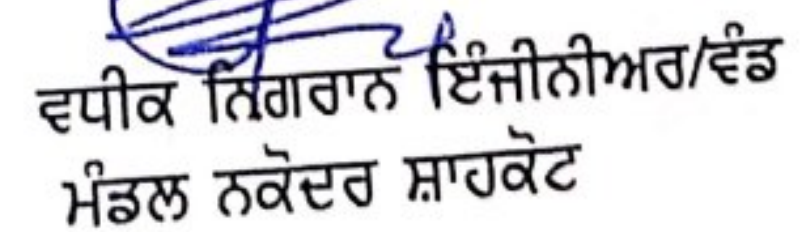 ਵਧੀਕ ਨਿਗਰਾਨ ਇੰਜੀਨੀਅਰ/ਵੰਡ
ਮੰਡਲ ਨਕੋਦਰ ਸ਼ਾਹਕੋਟ